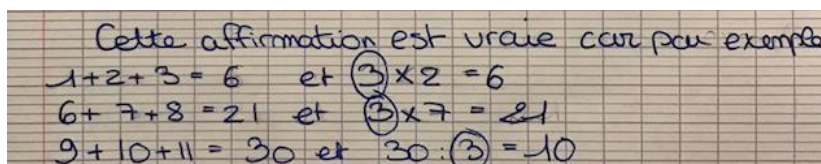 Cette affirmation est vraie car par exemple
1+2+3 = 6 et 3 × 2 = 6
6+ 7+8 = 21 et 3 × 7 = 21
9+10+11 = 30 et 30 : 3 = 10